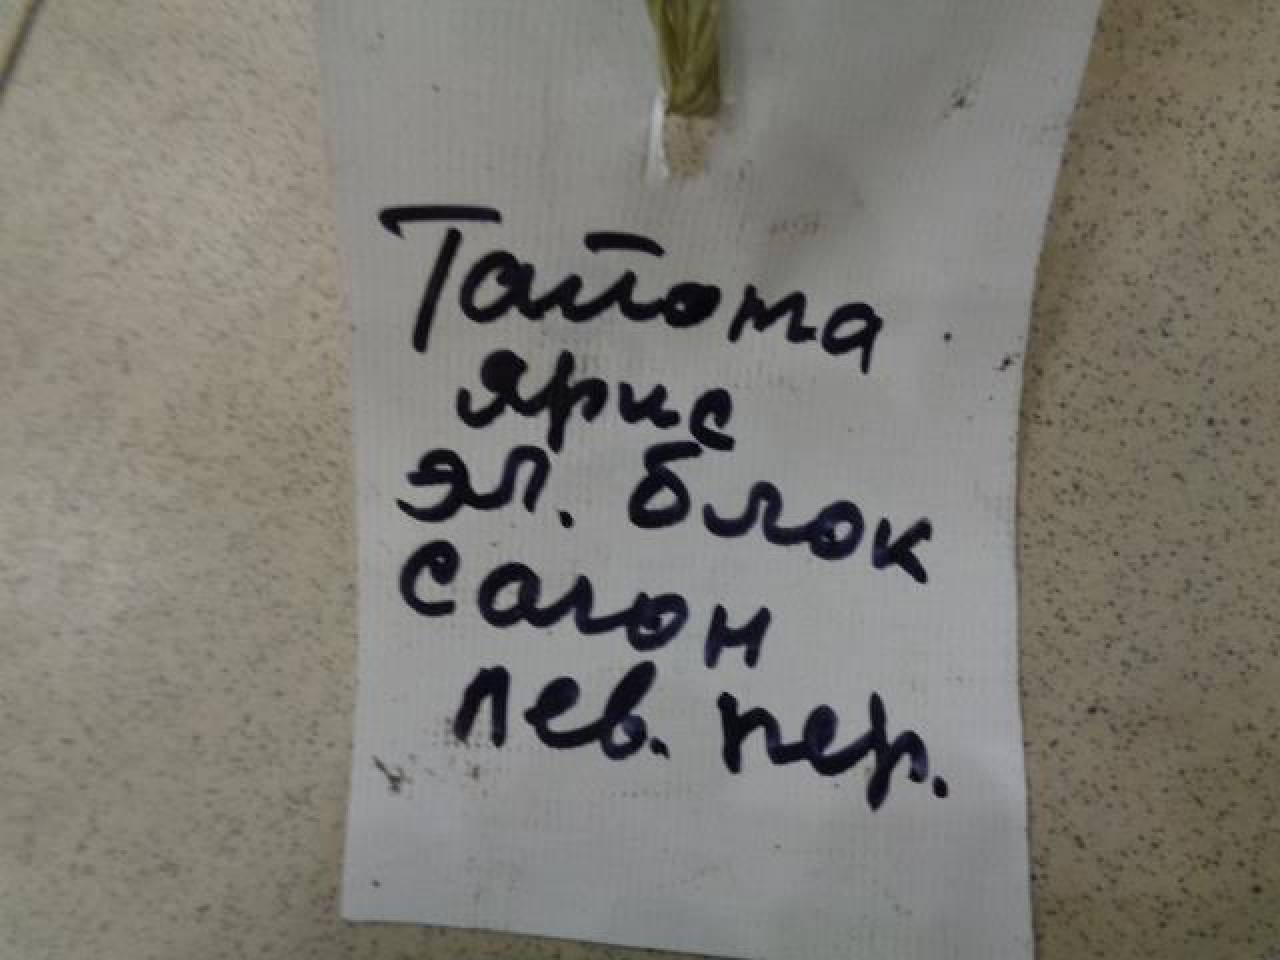 Тайота
ярис
эл. блок
салон
лев. пер.